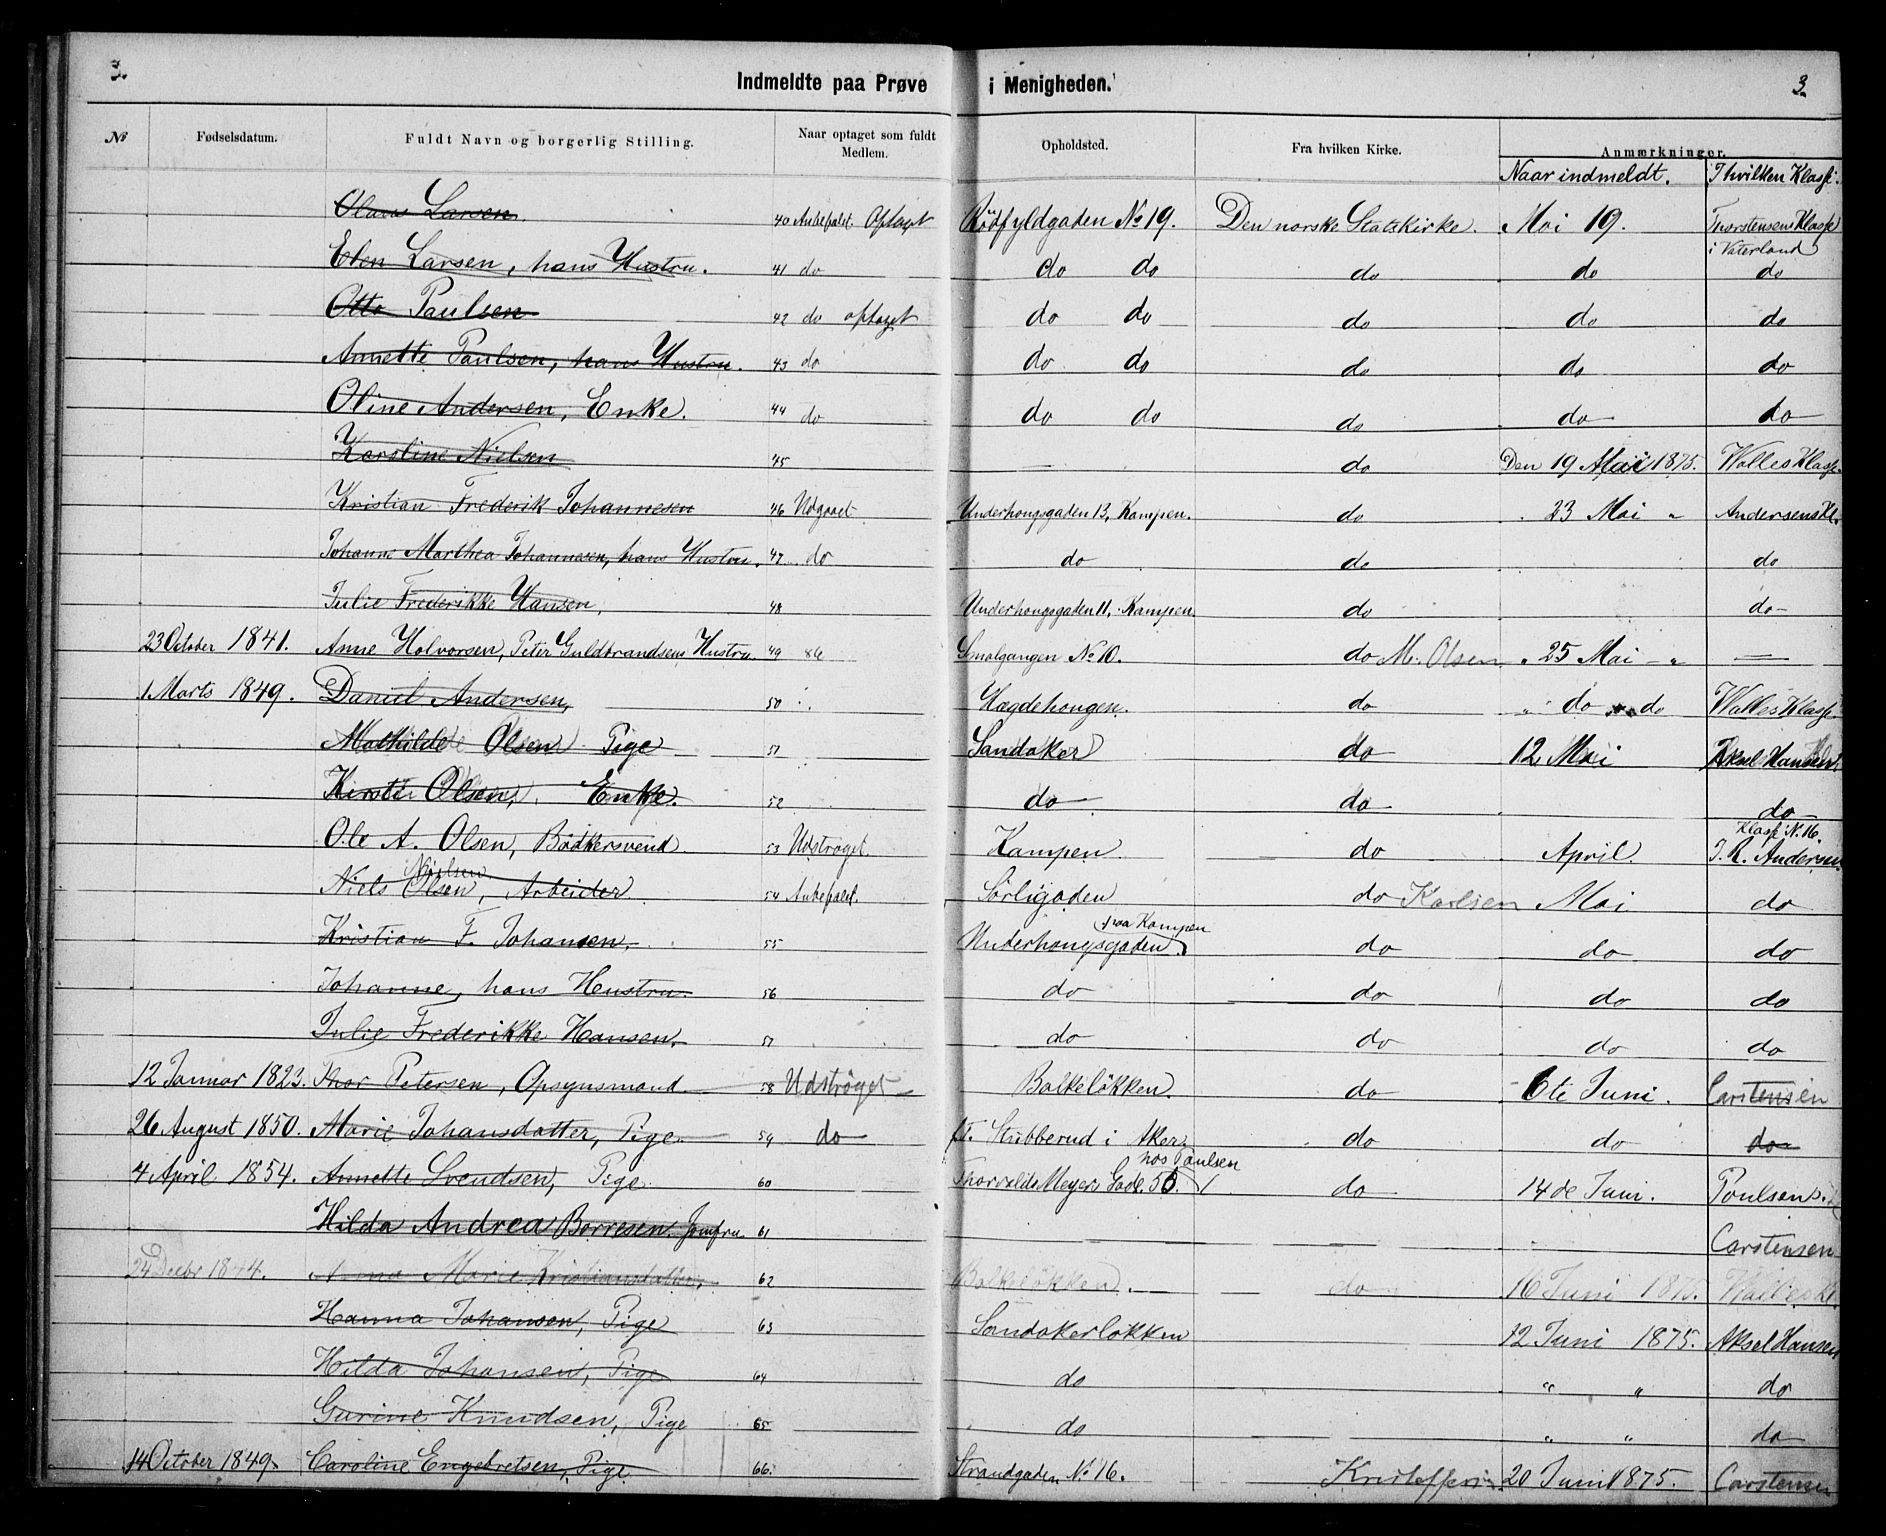 3.
Indmeldte paa Prøve i Menigheden.
3.
No Fødselsdatum. Fuldt Navn og borgerlig Stilling. Naar optaget som fuldt Medlem. Opholdsted. Fra hvilken Kirke. Anmærkninger.
Naar indmeldt. I hvilken Klasse.
Olaus Larsen 40 Anbefalet. Optaget Rödfyldgaden No 19. Den norske Statskirke. Mai 19. Thorstensens Klasse i Vaterland
Elen Larsen, hans Hustru. 41 do do do do do do
Otto Paulsen 42 do optaget do do do do do
Annette Paulsen, hans Hustru. 43 do do do do do do
Oline Andersen, Enke. 44 do do do do do do
Karoline Nielsen 45 — do Den 19 Mai 1875. Walles Klasse.
Kristian Frederik Johannesen 46 Udgaaet Underhaugsgaden 13, Kampen. do 23 Mai " Andersens Kl.
Johanne Marthea Johannesen, hans Hustru. 47 do do do do
Julie Frederikke Hansen, 48 Underhaugsgaden 11, Kampen. do do
23 October 1841. Anne Halvorsen, Peter Guldbrandsens Hustru. 49 86 Smalgangen No 10. do M. Olsen " 25 Mai — " —
1 Marts 1849. Daniel Andersen, 50 Hægdehougen. do " do do Walles Klasse.
Mathilde Olsen Pige 51 Sandaker do 12 Mai Aksel Hansen
Kirsti Olsen, Enke. 52 do do do
Ole A. Olsen, Bödkersvend. 53 Udströget. Kampen do April. Klasse No. 16. J. A. Andersen
Nielsen
Niels Olsen, Arbeider 54 Anbefalet. Sörligaden do Karlsen Mai do
Kristian F. Johansen, 55 Underhaugsgaden paa Kampen do do do
Johanne, hans Hustru. 56 do do do do
Julie Frederikke Hansen. 57 do do do do
12 Januar 1823. Thor Petersen, Opsynsmand. 58 Udströget Balkelökken. do 6te Juni. Carstensen
26 August 1850. Marie Johansdatter, Pige. 59 do Stubberud i Aker. do do do
4 April 1854. Annette Svendsen, Pige 60 Thorvald Meyers Gade. 56. hos Paulsen do 14de Juni. Poulsens.
Hilda Andrea Borresen Jomfru 61 Carstensen
24 Decbr 1844. Anna Marie Kristiansdatter, 62 Balkelökken. do 16 Juni 1875. Walles Kl.
Hanna Johansen, Pige 63 Sandakerlökken 12 Juni 1875. Aksel Hansen
Hilda Johansen, Pige 64 do " " do
Gurine Knudsen, Pige 65 do " " do
14 October 1849. Caroline Engebretsen, Pige 66. Strandgaden No 16. 20 Juni 1875. Carstensen